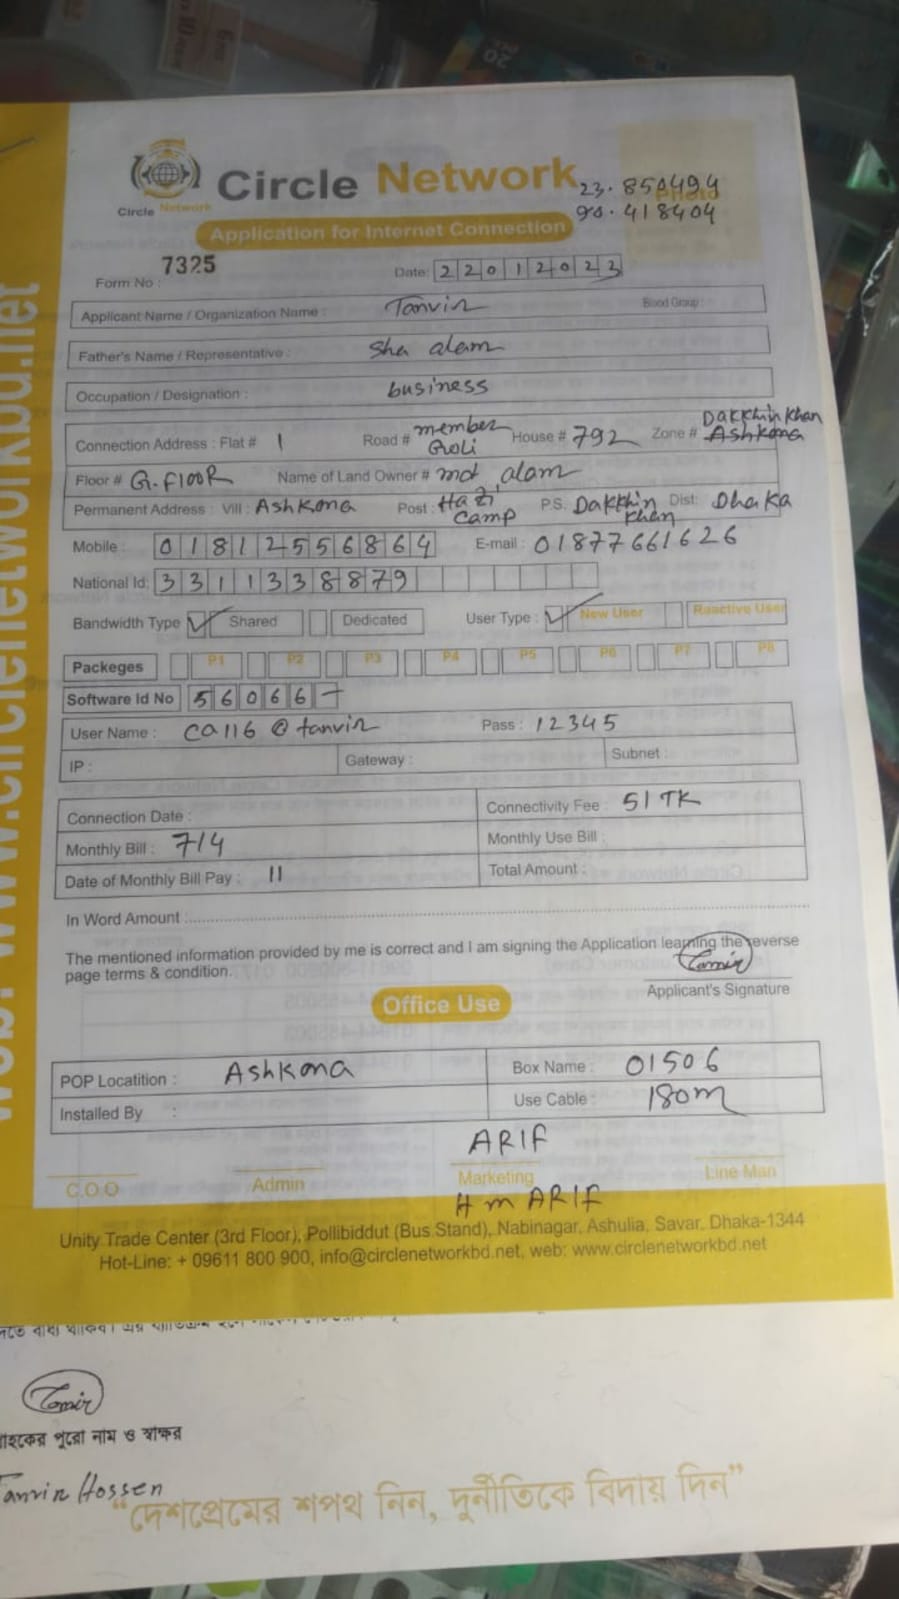 Circle Network
Circle Network
Photo
23.850494
90.418404
Application for Internet Connection
Form No : 7325
Date: 22012023
Applicant Name / Organization Name : Tanvir
Blood Group :
Father's Name / Representative : Sha alam
Occupation / Designation : business
Connection Address : Flat # 1 Road # member Goli House # 792 Zone # Dakkhin Khan Ashkona
Floor # G.FlooR Name of Land Owner # md alam
Permanent Address : Vill : Ashkona Post : Hazi Camp P.S. Dakkhin Khan Dist: Dhaka
Mobile : 01812556864 E-mail : 01877661626
National Id: 3311338879
Bandwidth Type Shared Dedicated User Type : New User Reactive User
Packeges P1 P2 P3 P4 P5 P6 P7 P8
Software Id No 56066
User Name : ca116@tanvir Pass : 12345
IP : Gateway : Subnet :
Connection Date : Connectivity Fee : 51 TK
Monthly Bill : 714 Monthly Use Bill :
Date of Monthly Bill Pay : 11 Total Amount :
In Word Amount :
The mentioned information provided by me is correct and I am signing the Application learning the reverse
page terms & condition.
Applicant's Signature
Office Use
POP Locatition : Ashkona Box Name : 01506
Installed By : Use Cable : 180m
ARIF
C.O.O Admin Marketing Line Man
H m ARIF
Unity Trade Center (3rd Floor), Pollibiddut (Bus Stand), Nabinagar, Ashulia, Savar, Dhaka-1344
Hot-Line: + 09611 800 900, info@circlenetworkbd.net, web: www.circlenetworkbd.net
www.circlenetworkbd.net
পুরো নাম ও স্বাক্ষর
Tanvir Hossen
“দেশপ্রেমের শপথ নিন, দুর্নীতিকে বিদায় দিন”